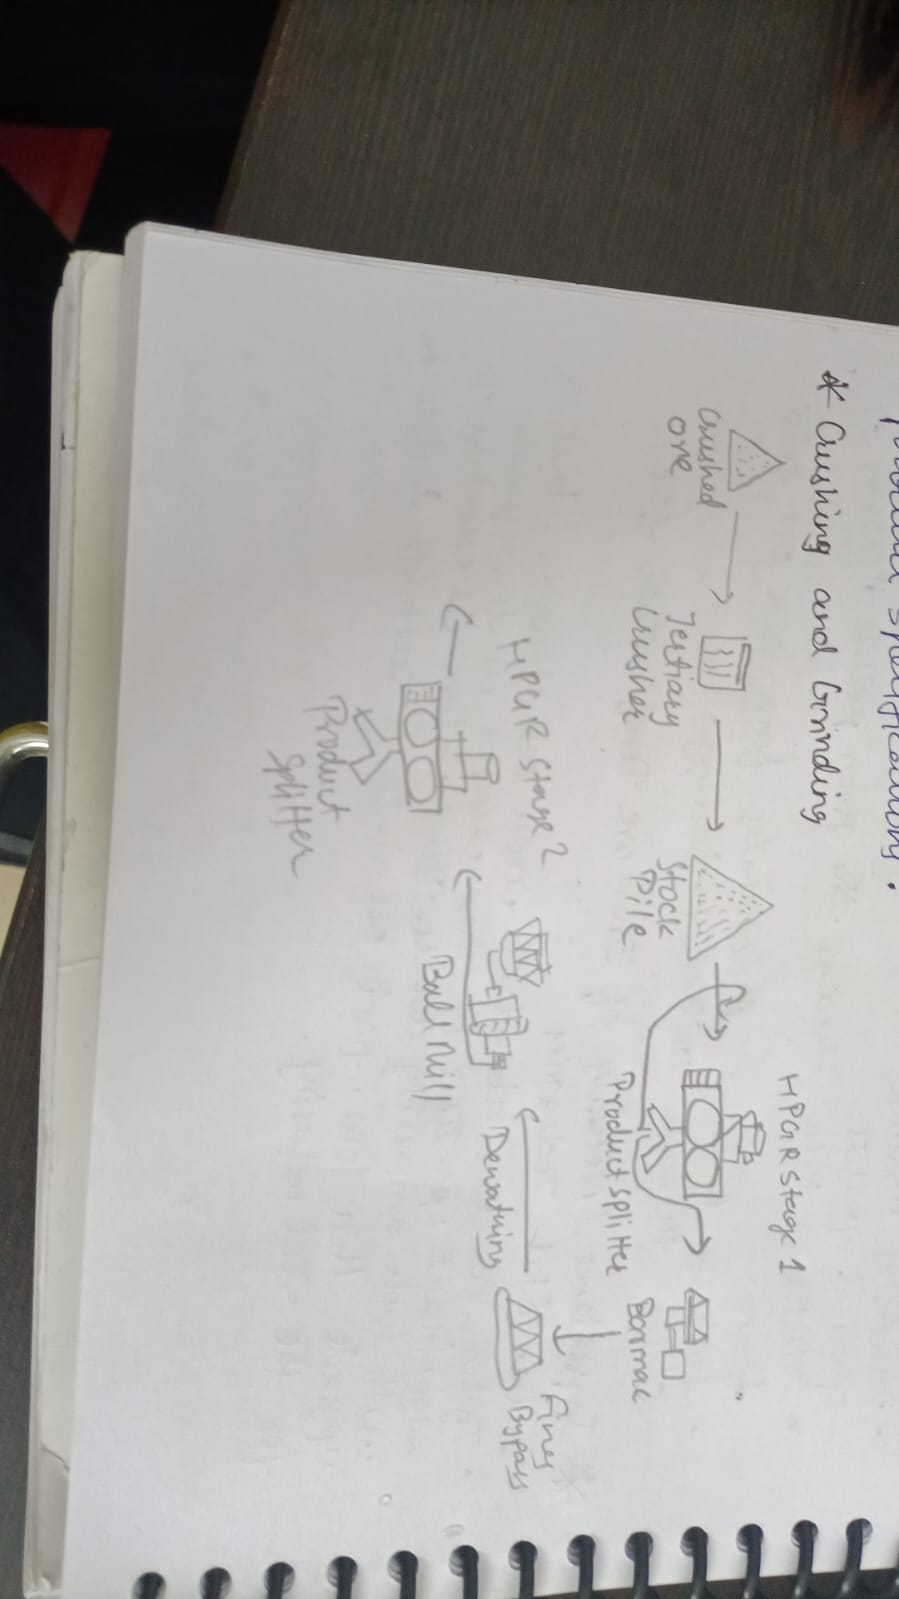 product specifications.
* Crushing and Grinding
HPGR Stage 1
Crushed
ore
Tertiary
Crusher
Stock
Pile
Product Splitter
Barmac
Fines
Bypass
Dewatering
Ball Mill
HPGR Stage 2
Product
Splitter